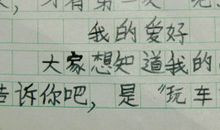 我的爱好
大家想知道我的
告诉你吧，是“玩车